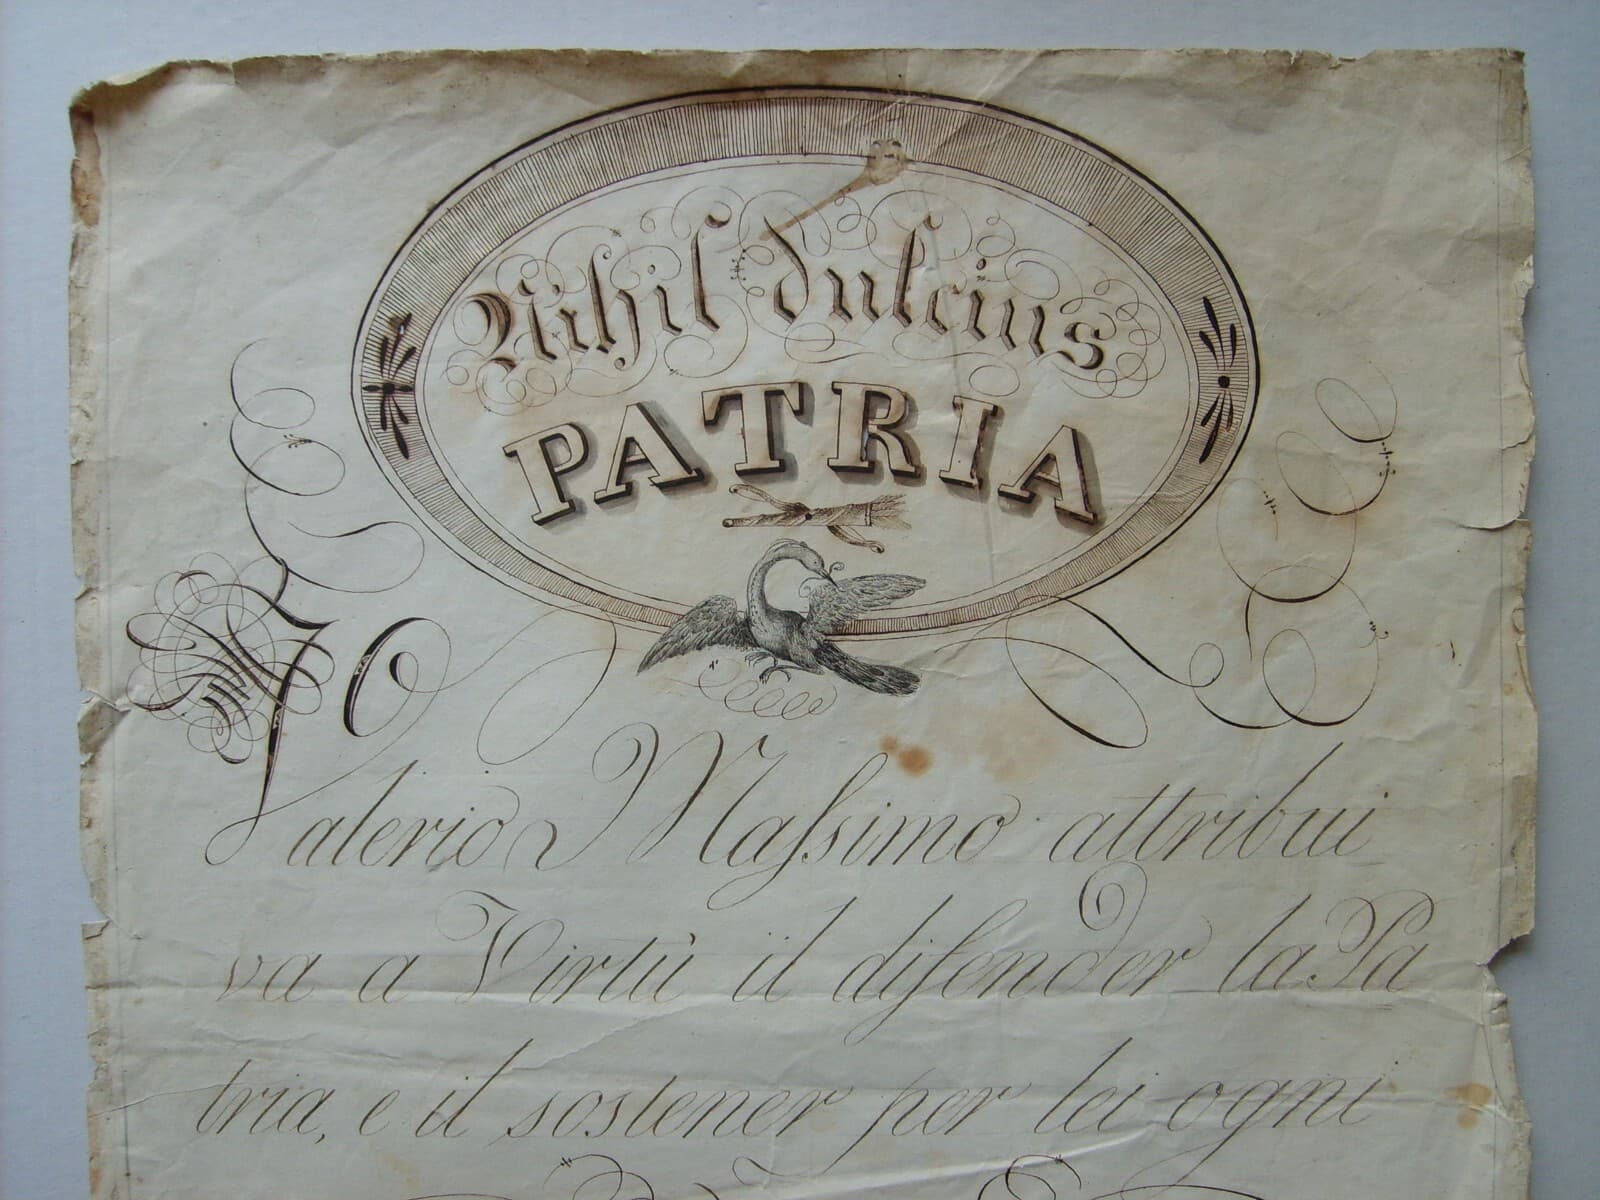 Nihil dulcius
PATRIA
Valerio Maſsimo attribui
va a Virtù il difender la Pa
tria, e il sostener per lei ogni